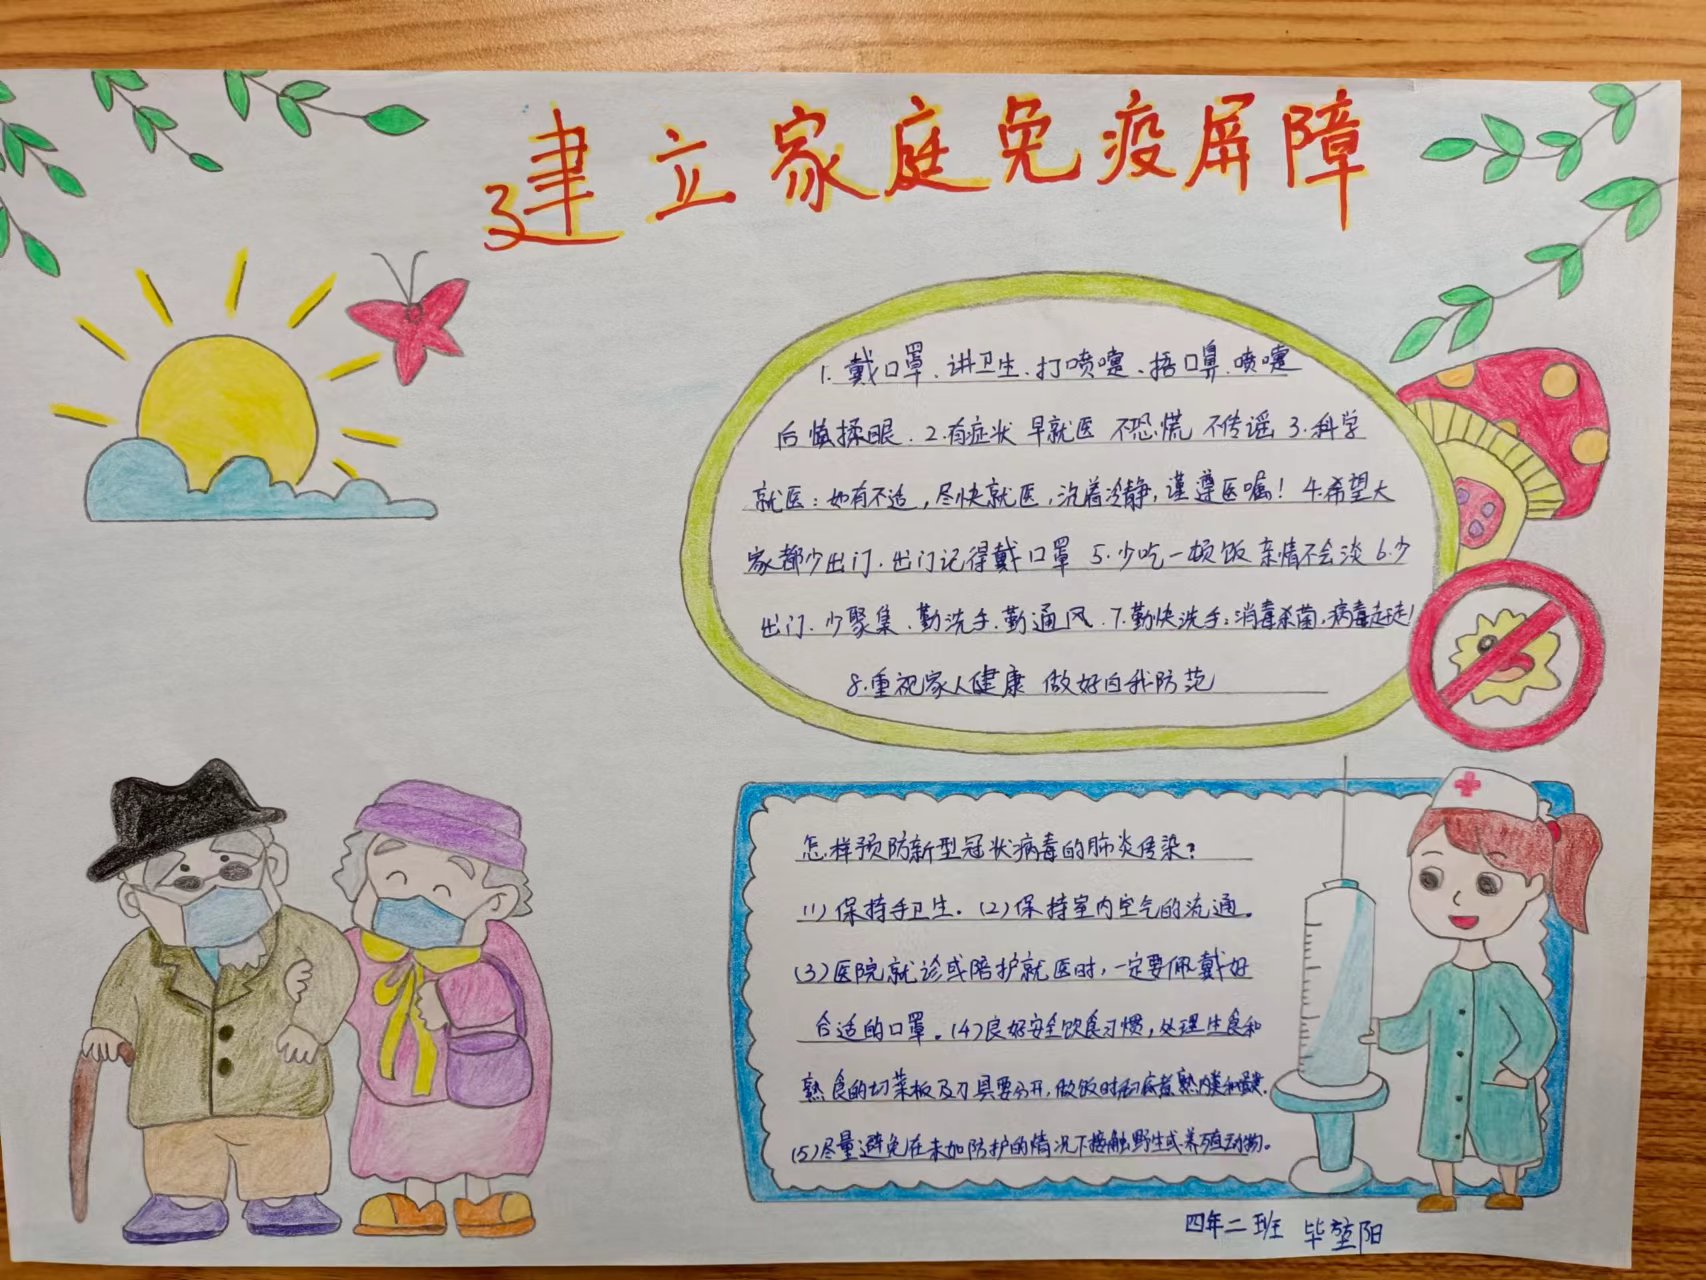 建立家庭免疫屏障
1. 戴口罩、讲卫生、打喷嚏、捂口鼻、喷嚏
后慎揉眼. 2.有症状 早就医 不恐慌 不传谣 3.科学
就医：如有不适，尽快就医，沉着冷静，谨遵医嘱！ 4.希望大
家都少出门.出门记得戴口罩 5.少吃一顿饭 亲情不会淡 6.少
出门.少聚集.勤洗手.勤通风.7.勤快洗手：消毒杀菌，病毒走走！
8.重视家人健康 做好自我防范
怎样预防新型冠状病毒的肺炎传染？
(1)保持手卫生. (2)保持室内空气的流通。
(3)医院就诊或陪护就医时，一定要佩戴好
合适的口罩。(4)良好安全饮食习惯，处理生食和
熟食的切菜板及刀具要分开，做饭时彻底煮熟肉类和蛋类.
(5)尽量避免在未加防护的情况下接触野生或养殖动物。
四年二班 毕堃阳